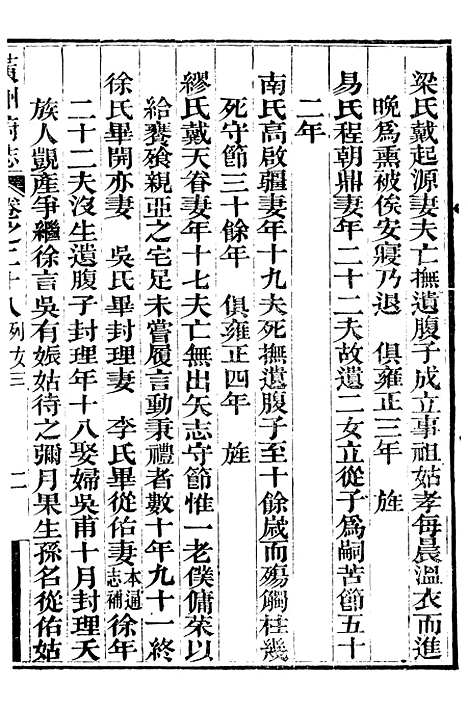 梁氏戴起源妻夫亡撫遺腹子成立事祖姑孝每晨溫衣而進
晚爲熏被俟安寢乃退　俱雍正三年　旌
易氏程朝鼎妻年二十二夫故遺二女立從子爲嗣苦節五十
二年
南氏高啟疆妻年十九夫死撫遺腹子至十餘歲而殤觸柱幾
死守節三十餘年　俱雍正四年　旌
繆氏戴天眷妻年十七夫亡無出矢志守節惟一老僕傭榮以
給饔飱親亞之宅足未嘗履言動秉禮者數十年九十一終
徐氏畢開亦妻　吳氏畢封理妻　李氏畢從佑妻本通志補徐年
二十二夫沒生遺腹子封理年十八娶婦吳甫十月封理夭
族人覬產爭繼徐言吳有娠姑待之彌月果生孫名從佑姑
黃州府志　卷之二十八列女三　二